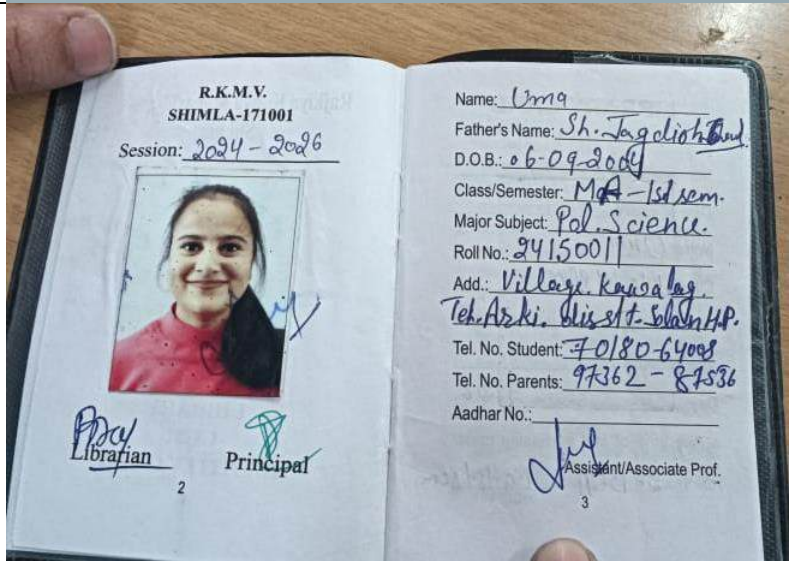 R.K.M.V.
SHIMLA-171001
Session: 2024 - 2026
Librarian
Principal
2
Name: Uma
Father's Name: Sh. Jagdish
D.O.B.: 06-09-2004
Class/Semester: MA - Ist sem.
Major Subject: Pol. Science.
Roll No.: 24150011
Add.: Village. 
Teh. Arki. Disstt- Solan H.P.
Tel. No. Student: 70180-64008
Tel. No. Parents: 97362 - 87536
Aadhar No.:
Assistant/Associate Prof.
3